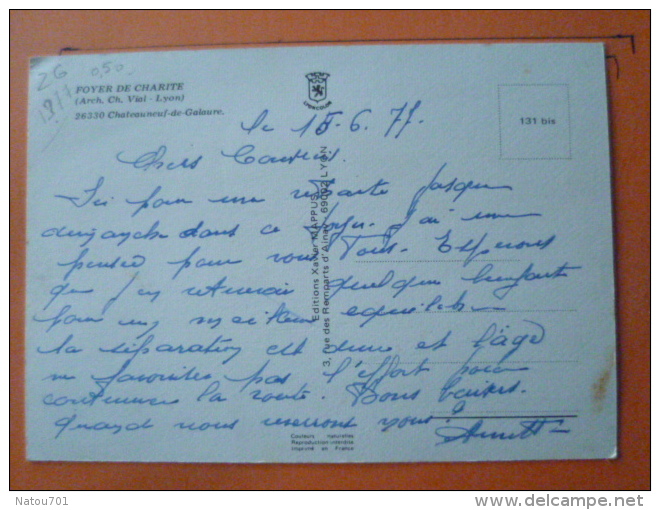 26
0,50
1977
FOYER DE CHARITE
(Arch. Ch. Vial - Lyon)
26330 Chateauneuf-de-Galaure.
131 bis
le 15-6.77.
Chers Cousins.
Ici pour une retraite jusque
dimanche dans ce Foyer. J'ai une
pensée pour vous Tous. Espérons
que j'en retirerai quelque bienfaits
pour un meilleur equilibre
la séparation est dure et l'âge
ne favorise pas l'effort pour
continuer la route. Bons baisers.
quand nous reverrons nous?
Editions Xavier MAPPUS
3, rue des Remparts d'Ainay - 69002 LYON
Couleurs naturelles
Reproduction interdite
Imprimé en France
Natou701
delcampe.net